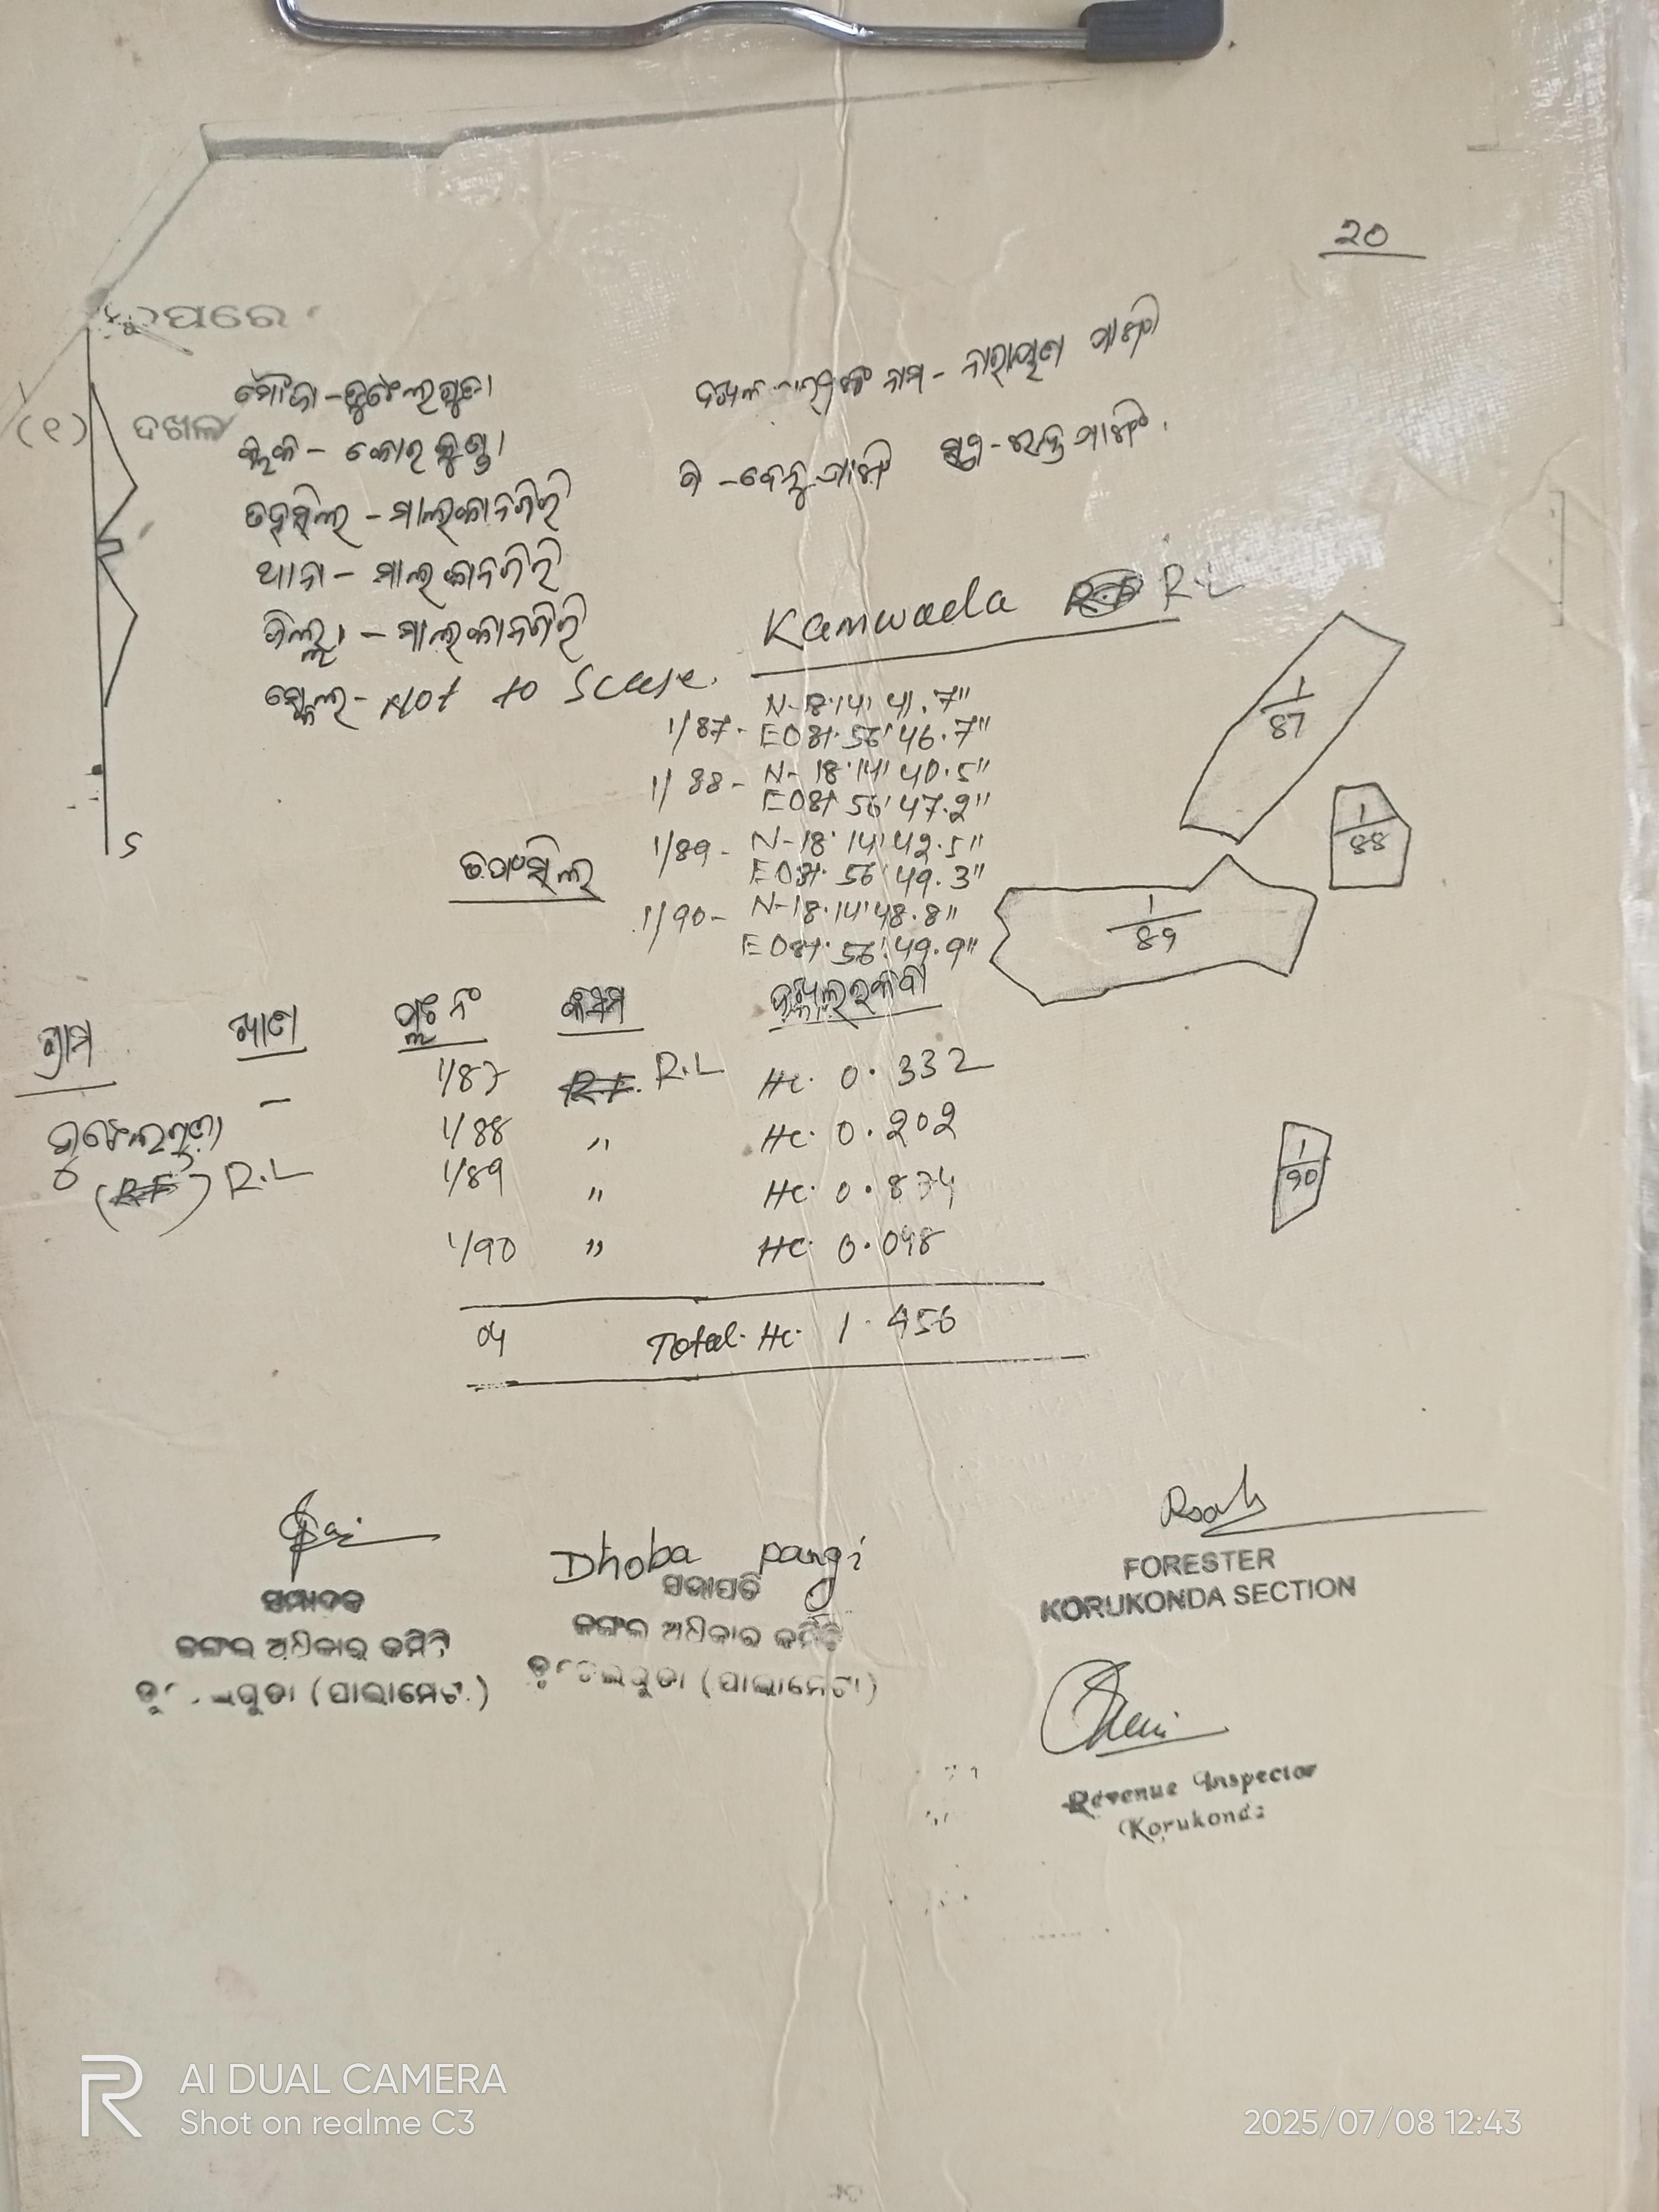 20
ମୌଜା - ଡୁଙ୍ଗେଲଗୁଡା
(୧) ଦଖଲ
ବ୍ଲକ - କୋରକୁଣ୍ଡା
ତହସିଲ - ମାଲକାନଗିରି
ଥାନା - ମାଲକାନଗିରି
ଜିଲ୍ଲା - ମାଲକାନଗିରି
ସ୍କେଲ - Not to Scale.
ନାମ - ନାରାୟଣ
Kamwada R.F R.L
1/87 - N-18°14' 41.7"
E081°56'46.7"
1/88 - N-18°14' 40.5"
E081°56'47.2"
1/89 - N-18°14'42.5"
E081°56'49.3"
1/90 - N-18°14'48.8"
E081°56'49.9"
1/87
1/88
1/89
1/90
S
ତପସିଲ
ଗ୍ରାମ ପ୍ଲଟ ନଂ କିସମ
1/87 R.F. R.L Hc. 0.332
1/88 " Hc. 0.202
(R.F) R.L 1/89 " Hc. 0.874
1/90 " Hc. 0.048
04 Total Hc. 1.456
Dhoba pangi
ସମ୍ପାଦକ
ଜଙ୍ଗଲ ଅଧିକାର କମିଟି
(ପାଲାମେଟା)
ସଭାପତି
ଜଙ୍ଗଲ ଅଧିକାର କମିଟି
(ପାଲାମେଟା)
FORESTER
KORUKONDA SECTION
Revenue Inspector
Korukonda
AI DUAL CAMERA
Shot on realme C3
2025/07/08 12:43